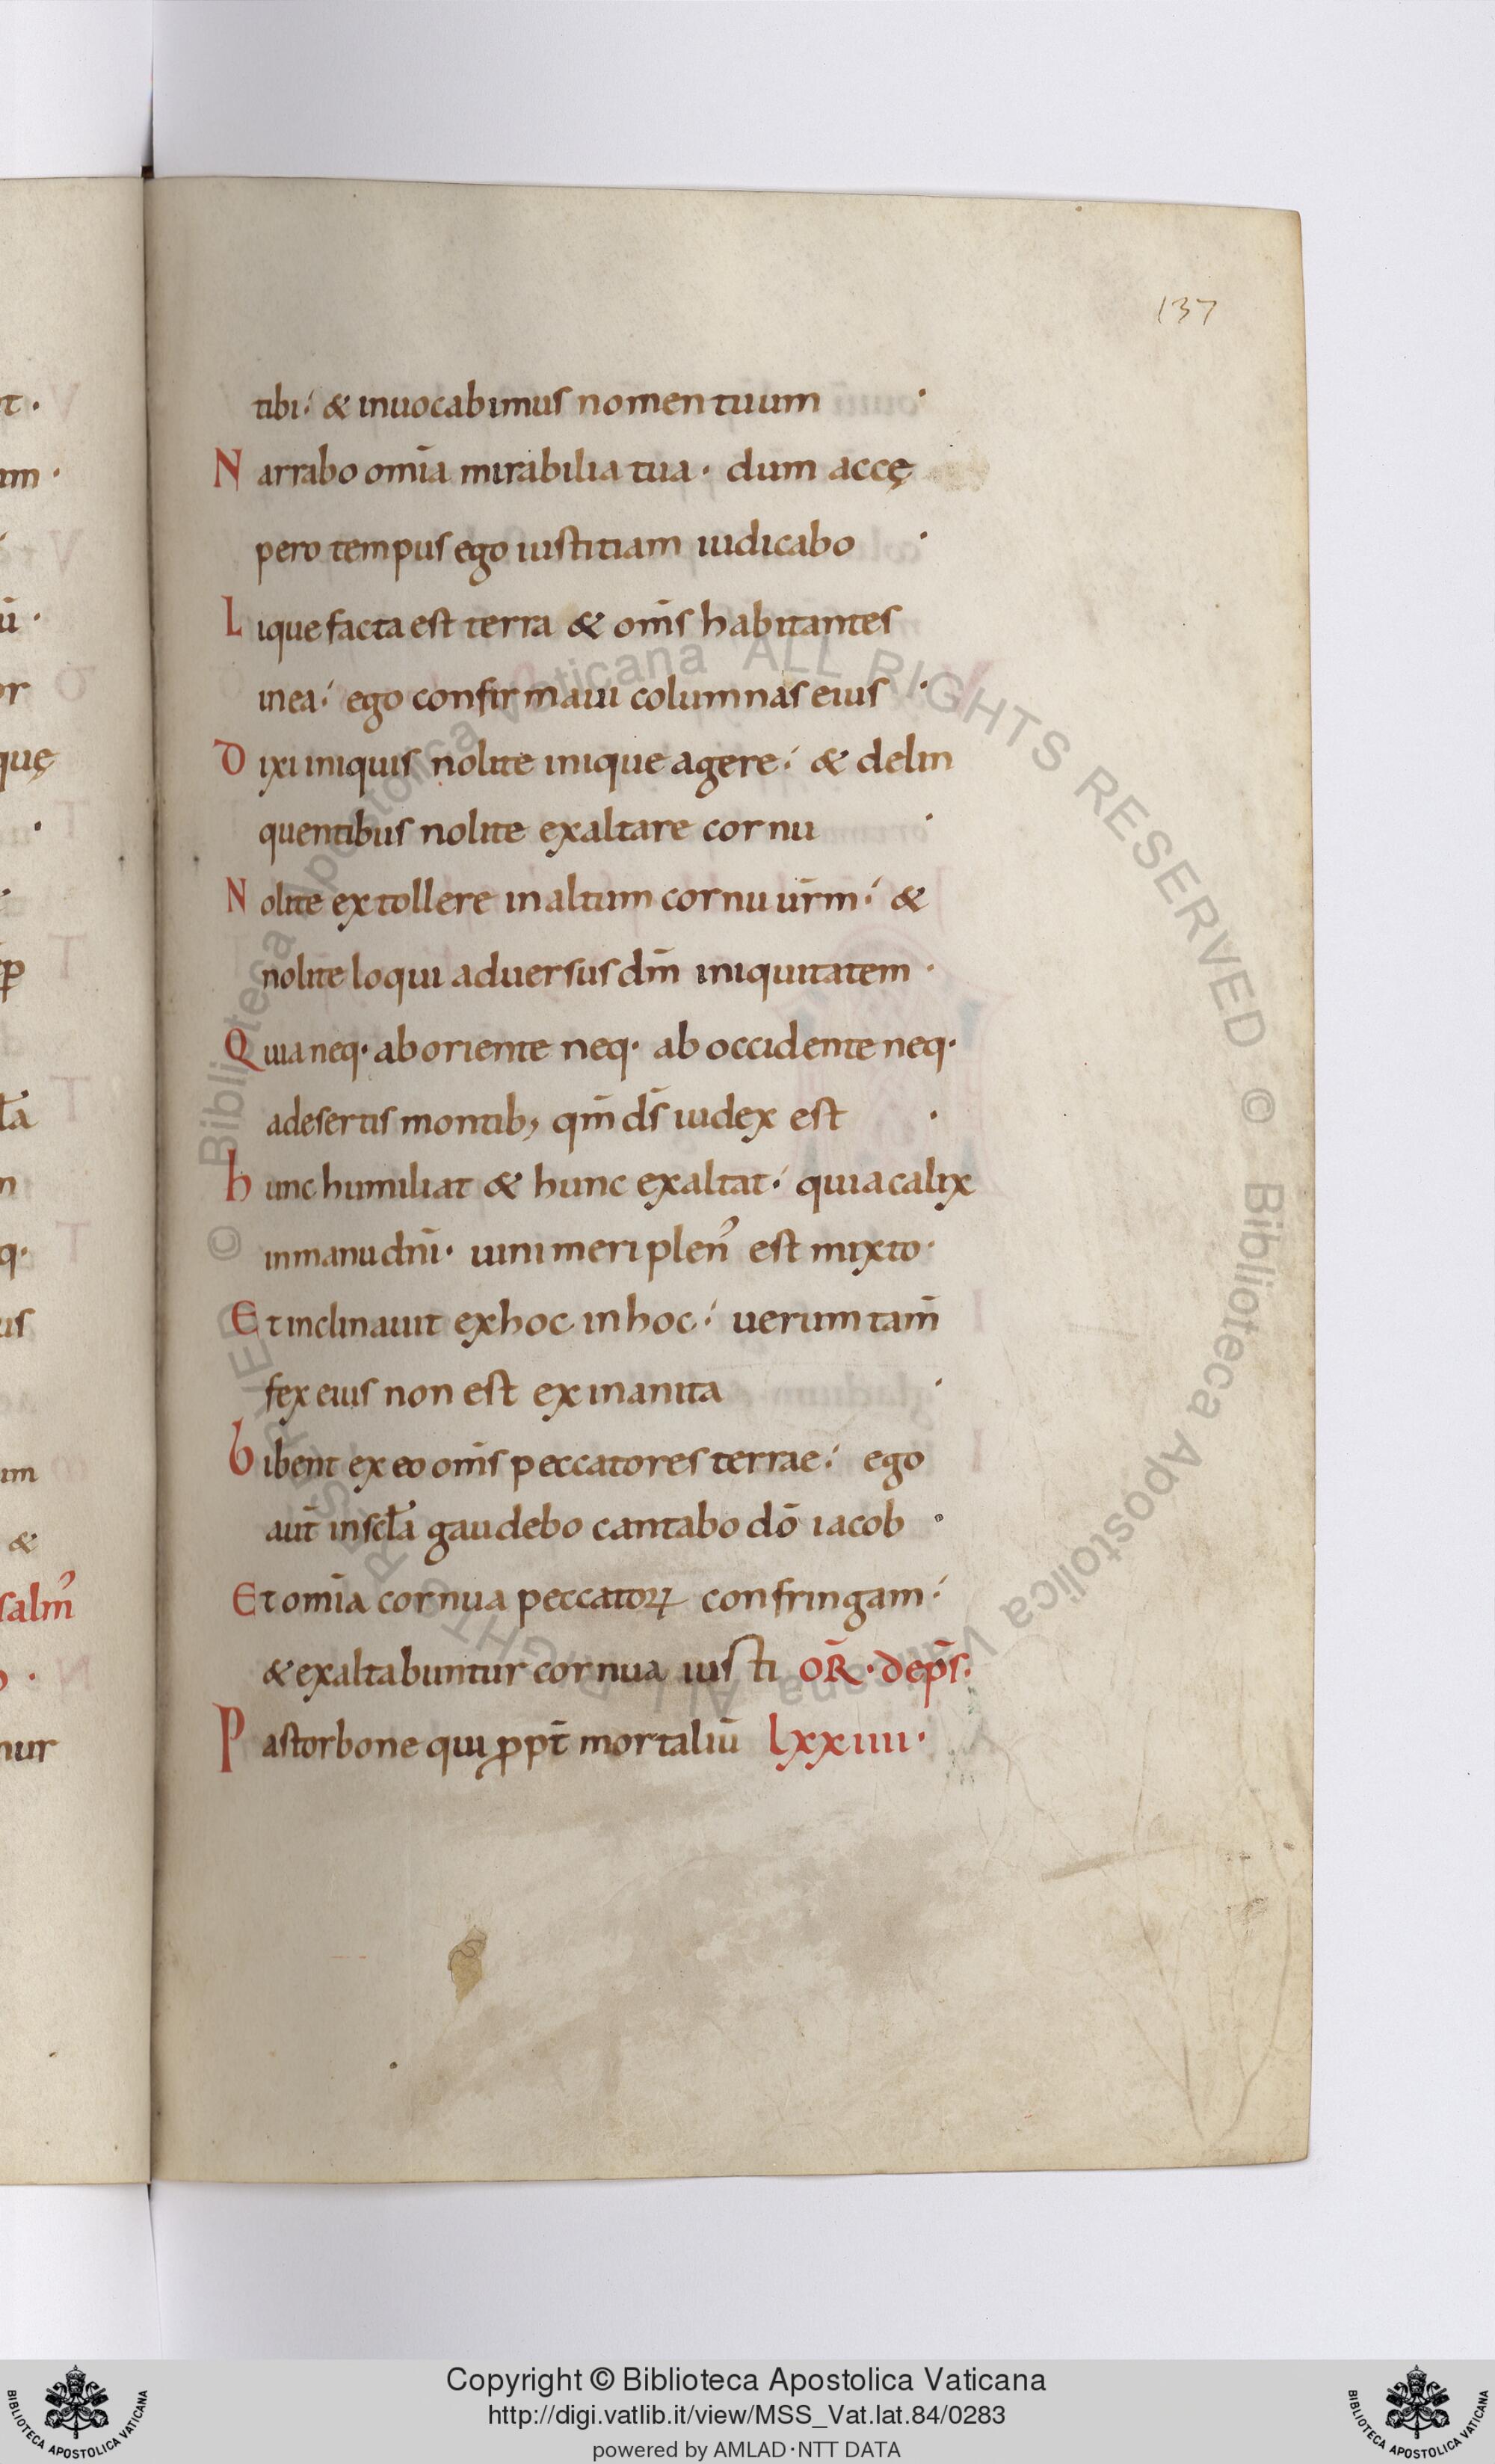 137
tibi⸵ & inuocabimus nomen tuum ·
Narrabo om̄ia mirabilia tua · dum accę
pero tempus ego iustitiam iudicabo ·
Liquefacta est terra & om̄s habitantes
in ea⸵ ego confirmaui columnas eius ·
Dixi iniquis nolite inique agere⸵ & delin
quentibus nolite exaltare cornu ·
Nolite extollere in altum cornu ur̄m⸵ &
nolite loqui aduersus dm̄ iniquitatem ·
Quia neq· ab oriente neq· ab occidente neq·
a desertis montib; qm̄ ds̄ iudex est ·
hunc humiliat & hunc exaltat⸵ quia calix
in manu dn̄i · uini meri plenꝰ est mixto ·
Et inclinauit ex hoc in hoc⸵ uerum tam̄
fex eius non est exinanita ·
bibent ex eo om̄s peccatores terrae⸵ ego
aut̄ in scła gaudebo cantabo dō iacob ·
Et om̄ia cornua peccatoꝝ confringam⸵
& exaltabuntur cornua iusti OR̄ · de ps̄.
Pastor bone qui ꝓpt̄ mortaliū lxxiiii ·
t ·
um ·
ū ·
or
quę
·
ła
q·
us
um
&
salmꝰ
nur
Copyright © Biblioteca Apostolica Vaticana
http://digi.vatlib.it/view/MSS_Vat.lat.84/0283
powered by AMLAD·NTT DATA
BIBLIOTECA APOSTOLICA VATICANA
BIBLIOTECA APOSTOLICA VATICANA
© Biblioteca Apostolica Vaticana ALL RIGHTS RESERVED © Biblioteca Apostolica Vaticana ALL RIGHTS RESERVED